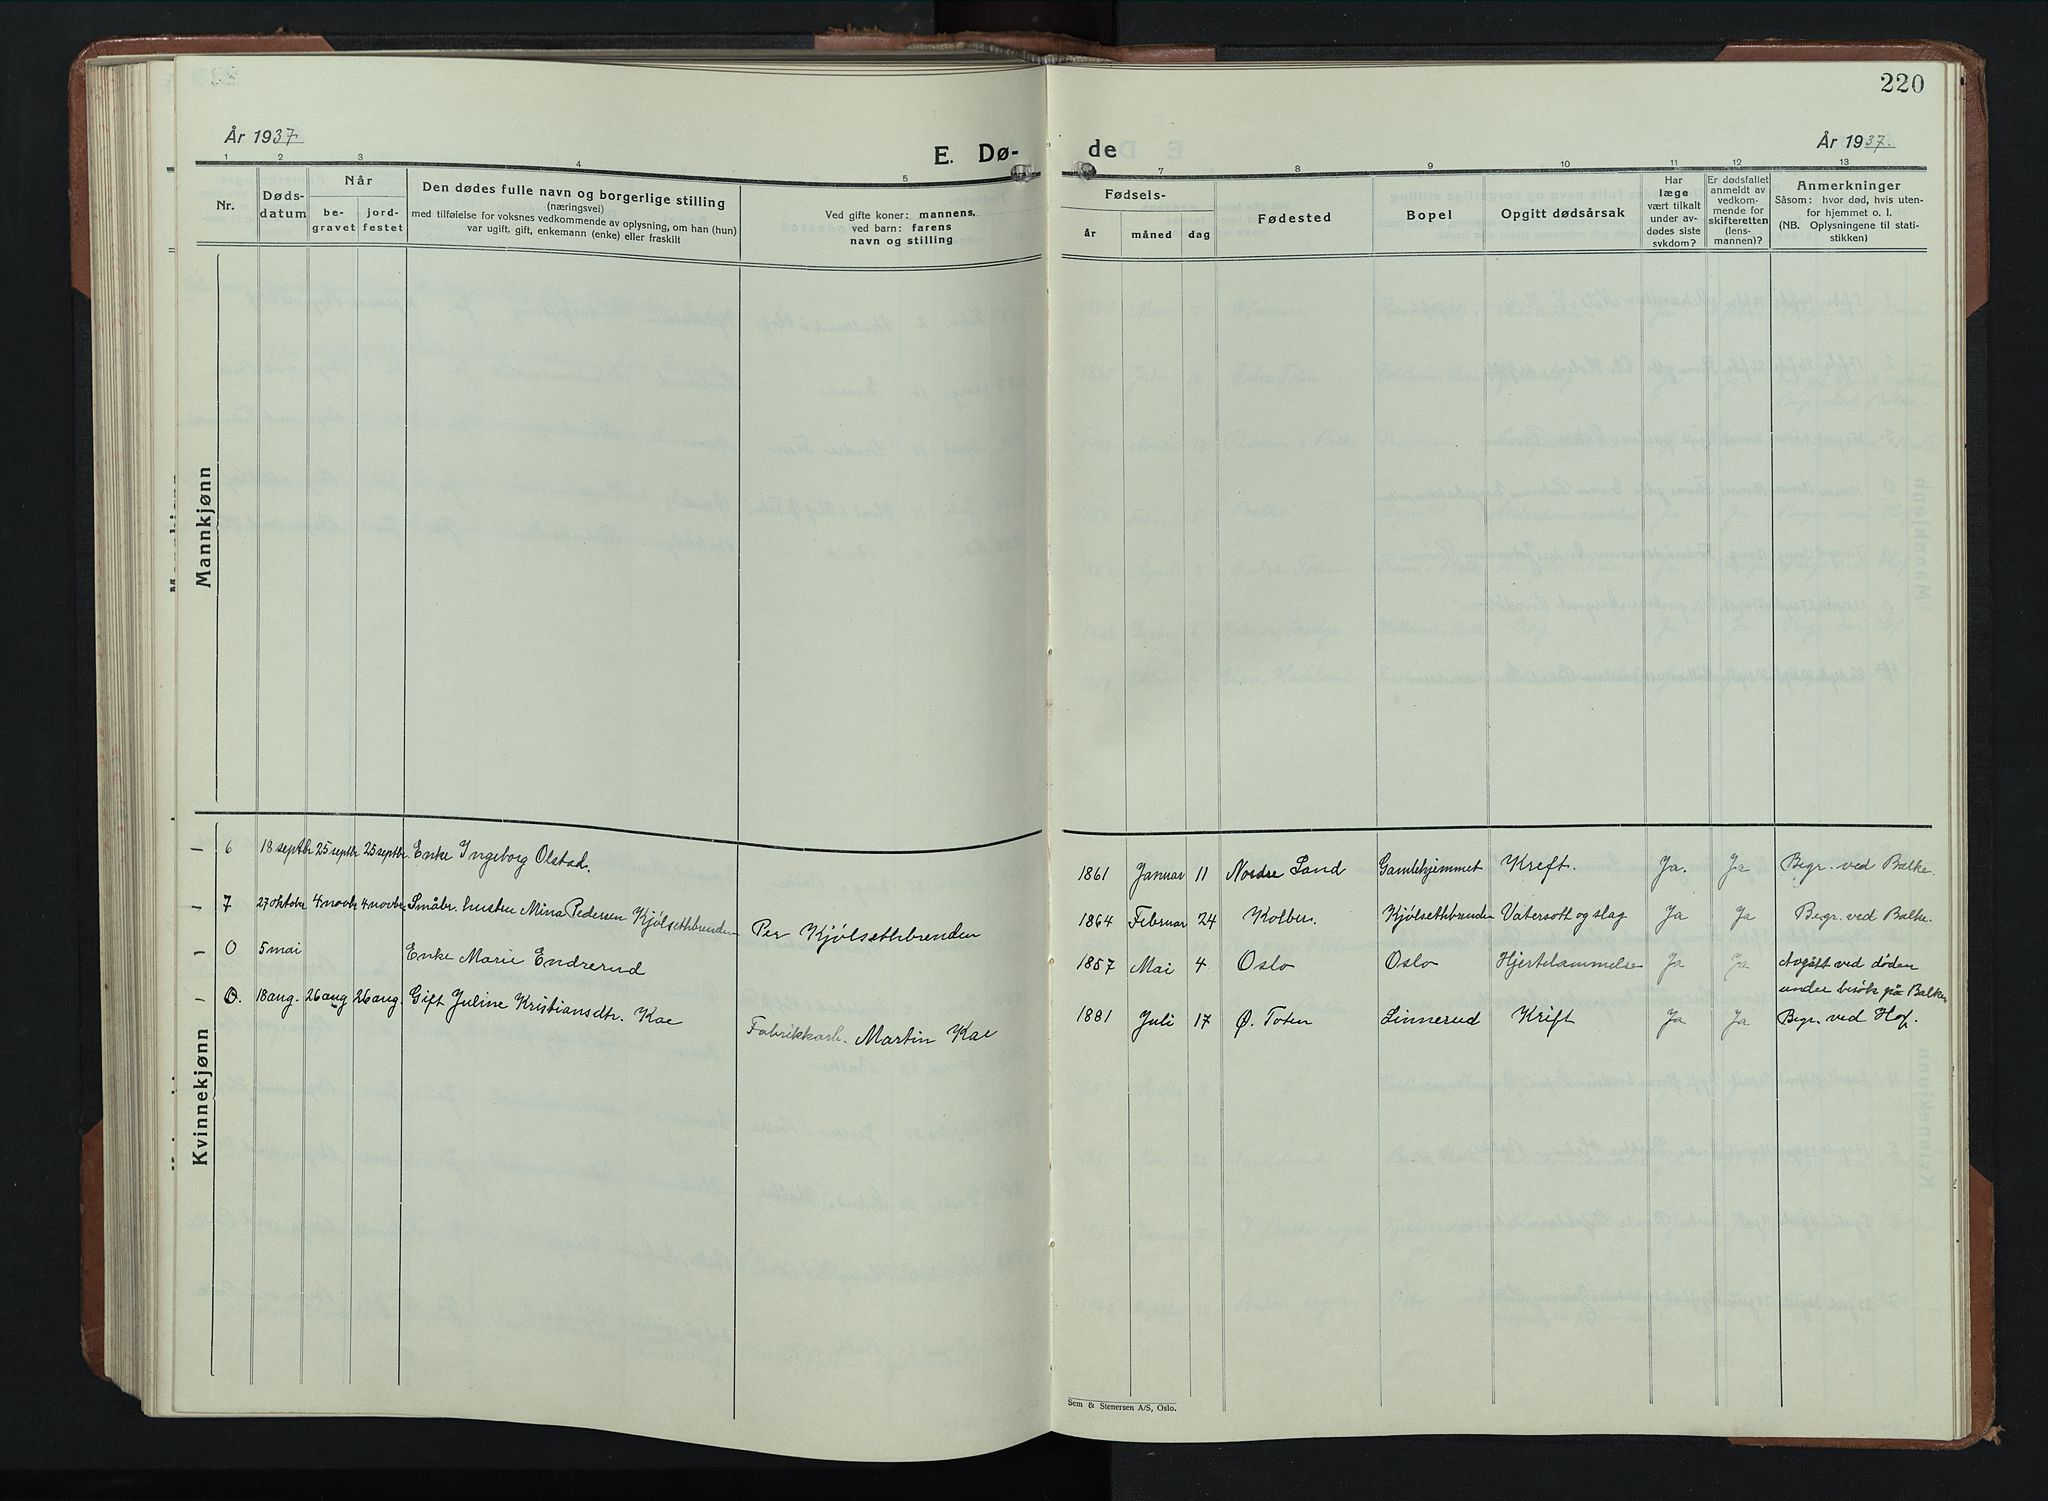 220
År 1937
E. Dø-
de
År 1937.
1 2 3 4 5
7 8 9 10 11 12 13
Nr.
Døds-
datum
Når
be-
gravet
jord-
festet
Den dødes fulle navn og borgerlige stilling
(næringsvei)
med tilføielse for voksnes vedkommende av oplysning, om han (hun)
var ugift, gift, enkemann (enke) eller fraskilt
Ved gifte koner: mannens,
ved barn: farens
navn og stilling
Fødsels-
år
måned
dag
Fødested
Bopel
Opgitt dødsårsak
Har
læge
vært tilkalt
under av-
dødes siste
sykdom?
Er dødsfallet
anmeldt av
vedkom-
mende for
skifteretten
(lens-
mannen)?
Anmerkninger
Såsom: hvor død, hvis uten-
for hjemmet o. l.
(NB. Oplysningene til stati-
stikken)
Mannkjønn
Kvinnekjønn
6 18 septbr 25 septbr 25 septbr. Enke Ingeborg Olstad. 1861 Januar 11 Nordre Land Gamlehjemmet Kreft. Ja. Ja Begr. ved Balke.
7 27 oktobr 4 novbr 4 novbr. Småbr. hustru Mina Pedersen Kjølsethbrenden Per Kjølsethbrenden 1864 Februar 24 Kolbu. Kjølsethbrenden Vatersott og slag Ja Ja Begr. ved Balke.
0 5 mai Enke Marie Endrerud 1857 Mai 4 Oslo Oslo Hjertelammelse Ja Ja Avgått ved døden
under besøk på Balke.
0. 18 aug. 26 aug 26 aug. Gift Juline Kristiansdtr. Kae Fabrikkarb. Martin Kae 1881 Juli 17 Ø. Toten Linnerud Krift Ja Ja Begr. ved Hof.
Sem & Stenersen A/S, Oslo.